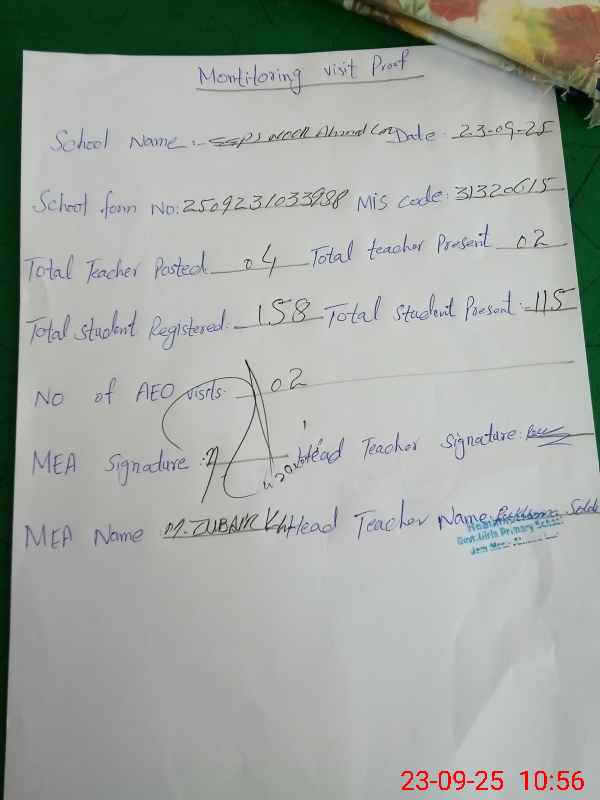 Montitoring visit Proof
School Name:- Ahmad Date: 23-09-25
School form No: 2509231033938 MIS code: 31320615
Total Teacher Posted 04 Total teacher Present 02
Total student Registered: 158 Total student Present: 115
NO of AEO visits. 02
MEA Signature: Head Teacher Signature:
MEA Name M. ZUBAIR Head Teacher Name:
Govt. Girls Primary School
23-09-25 10:56